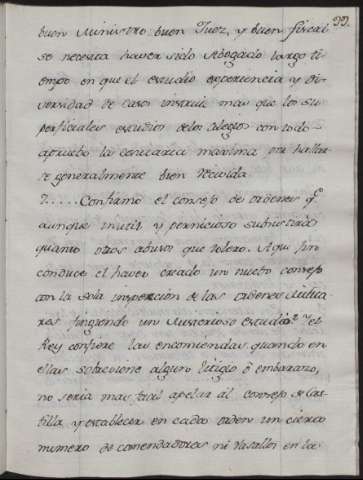 99.
buen Ministro buen Juez, y buen fiscal
se necesita haver sido Abogado largo ti-
empo en que el estudio experiencia y di-
versidad de casos instruie mas que los su-
perficiales estudios de los colegios con todo
apruebo la contraria maxima por hallar-
se generalmente bien recivida
7..... Confirmo el consejo de ordenes qe
aunque inutil y pernicioso subsistirà
quanto otros abusos que tolero. A qui fin
conduce el haver creado un nuebo consejo
con la sola inspeccion de las ordenes Milita-
res fingiendo un
Rey confiere las encomiendas, quando en
ellas sobreviene algun litigio ò embarazo,
no seria mas facil apelar al consejo de Cas-
tilla y establecer en cada orden un cierto
numero de comendadores ni vasallos en los